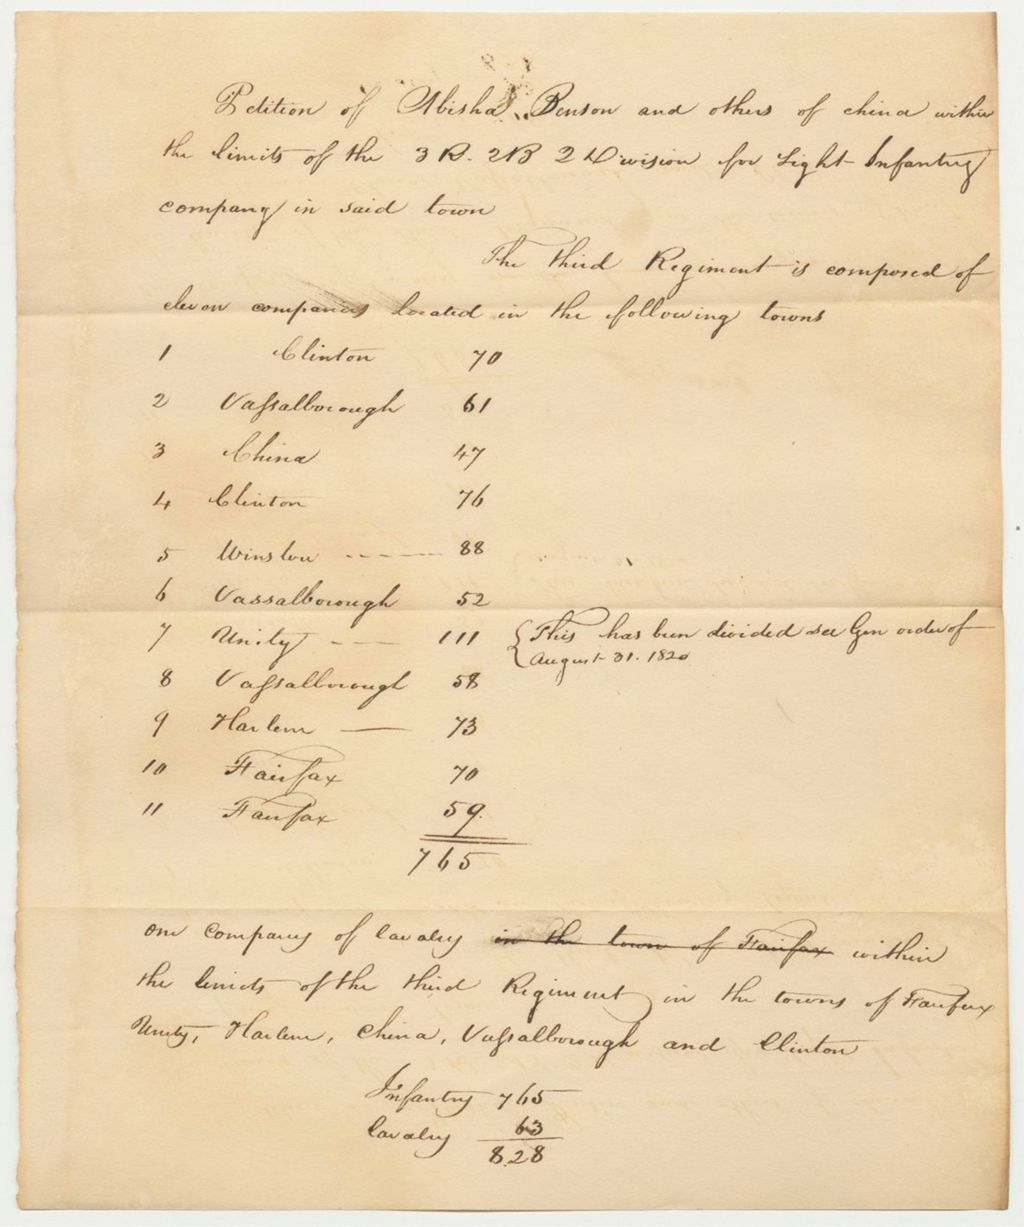 Petition of Abisha Benson and others of china within
the limits of the 3 R. 2B 2 Division for Light Infantry
company in said town
The third Regiment is composed of
eleven companies located in the following towns
1 Clinton 70
2 Vassalborough 61
3 China 47
4 Clinton 76
5 Winslow ---- 88
6 Vassalborough 52
7 Unity --- 111 { This has been divided see Gen order of
August 31. 1820
8 Vassalborough 58
9 Harlem — 73
10 Fairfax 70
11 Fairfax 59.
765
one company of cavalry in the town of Fairfax within
the limits of the third Regiment in the towns of Fairfax
Unity, Harlem, China, Vassalborough and Clinton
Infantry 765
Cavalry 63
828